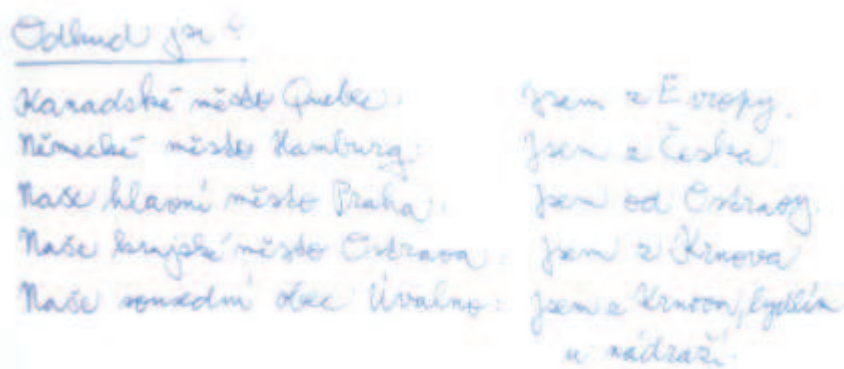 Odkud jsi?
Kanadské město Quebec: Jsem z Evropy.
Německé město Hamburg: Jsem z Česka.
Naše hlavní město Praha: Jsem od Ostravy.
Naše krajské město Ostrava: Jsem z Krnova
Naše sousední obec Úvalno: Jsem z Krnova, bydlím
u nádraží.